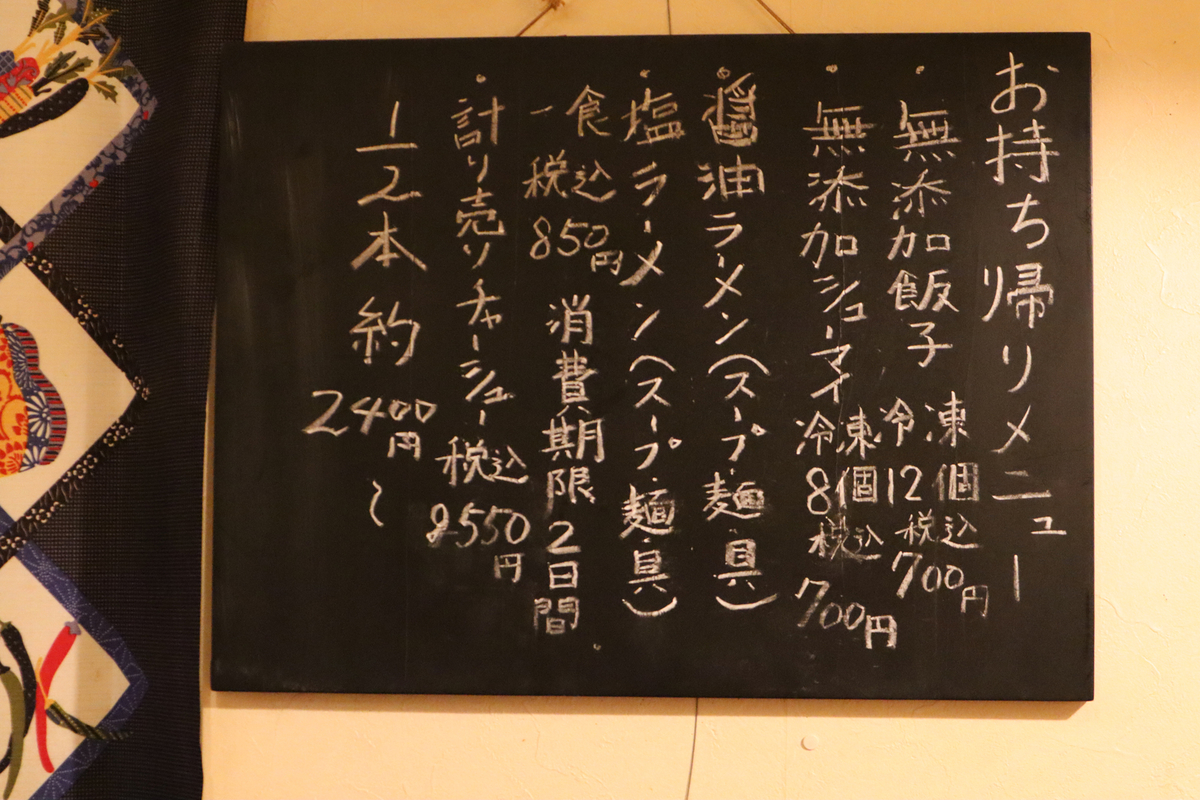 お持ち帰りメニュー
・無添加飯子 冷凍12個 税込700円
・無添加シューマイ 冷凍8個 税込700円
・醤油ラーメン(スープ・麺・具)
・塩ラーメン(スープ・麺・具)
一食税込850円 消費期限2日間
・計り売りチャーシュー 税込 円
1/2本約2400円〜